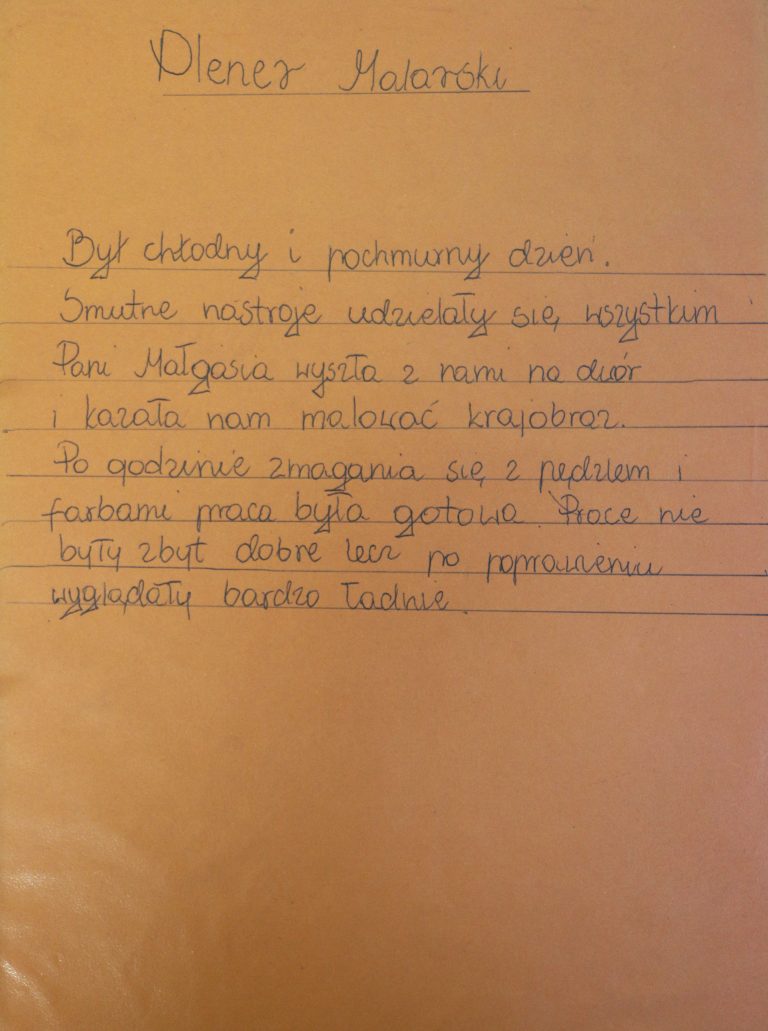 Plener Malarski
Był chłodny i pochmurny dzień.
Smutne nastroje udzielały się wszystkim
Pani Małgosia wyszła z nami na dwór
i kazała nam malować krajobraz.
Po godzinie zmagania się z pędzlem i
farbami praca była gotowa. Prace nie
były zbyt dobre lecz po poprawieniu
wyglądały bardzo ładnie.